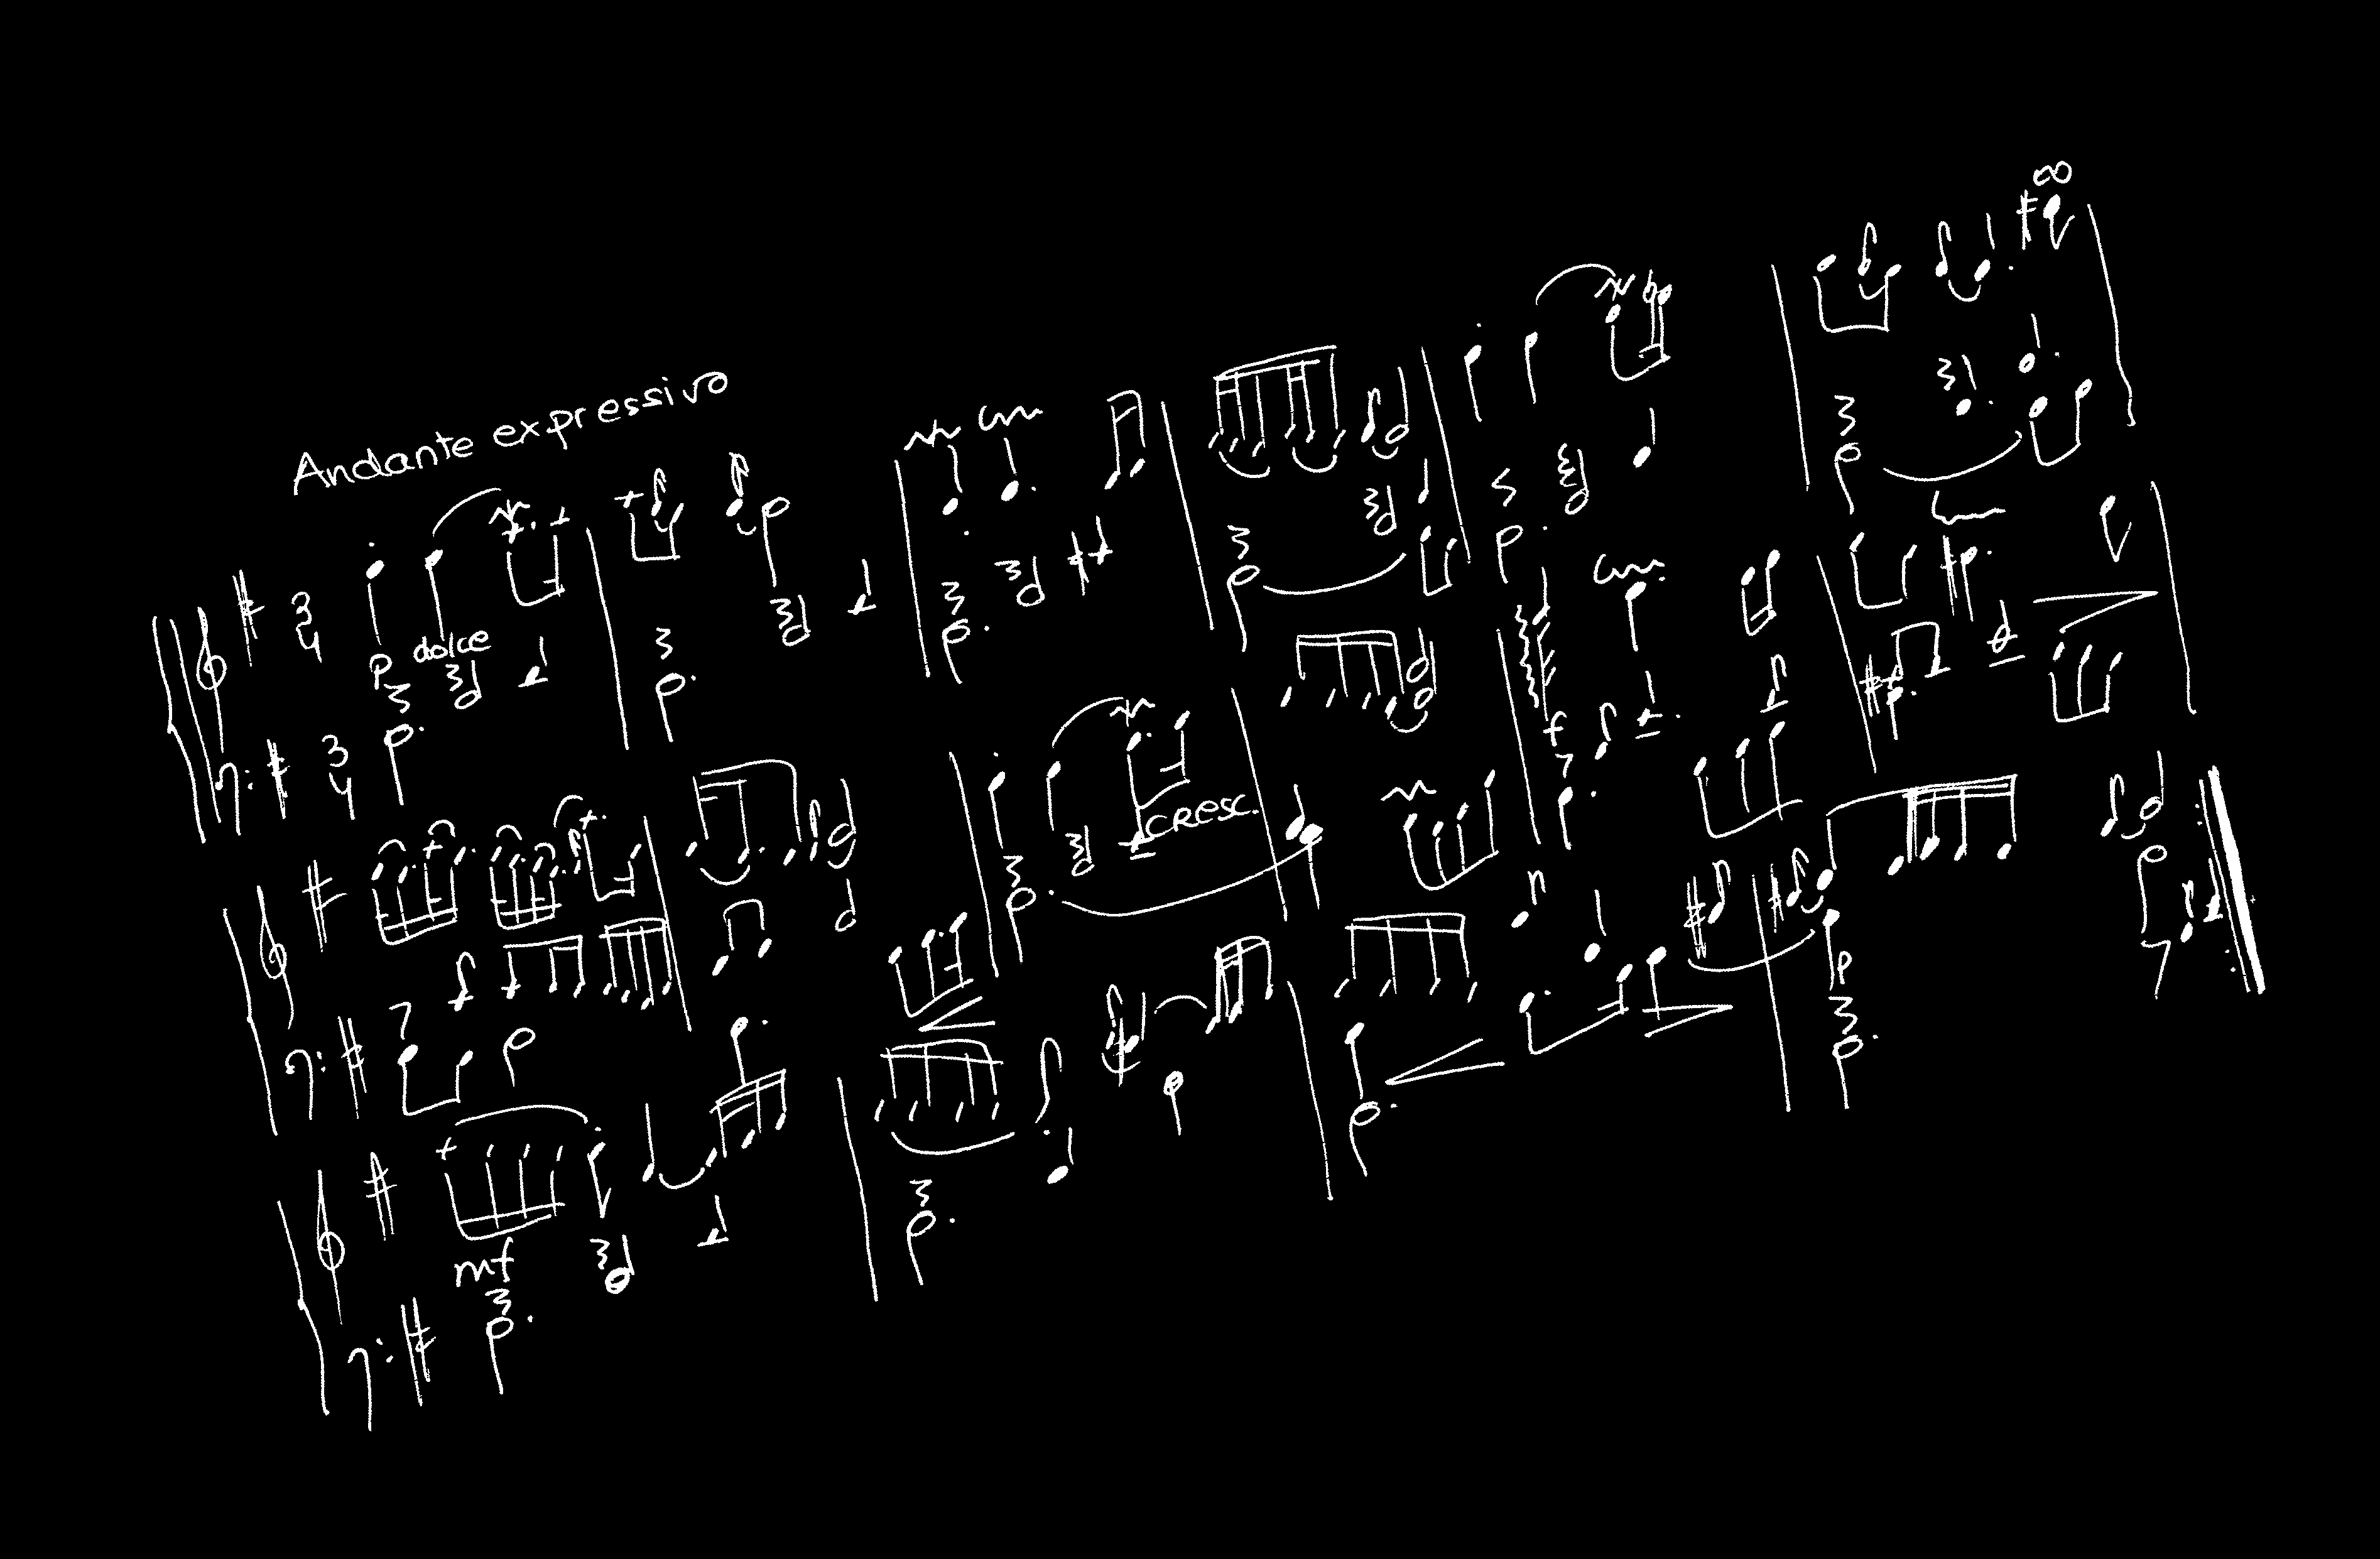 Andante expressivo
3 4
p dolce
3 4
cresc.
f
p
mf